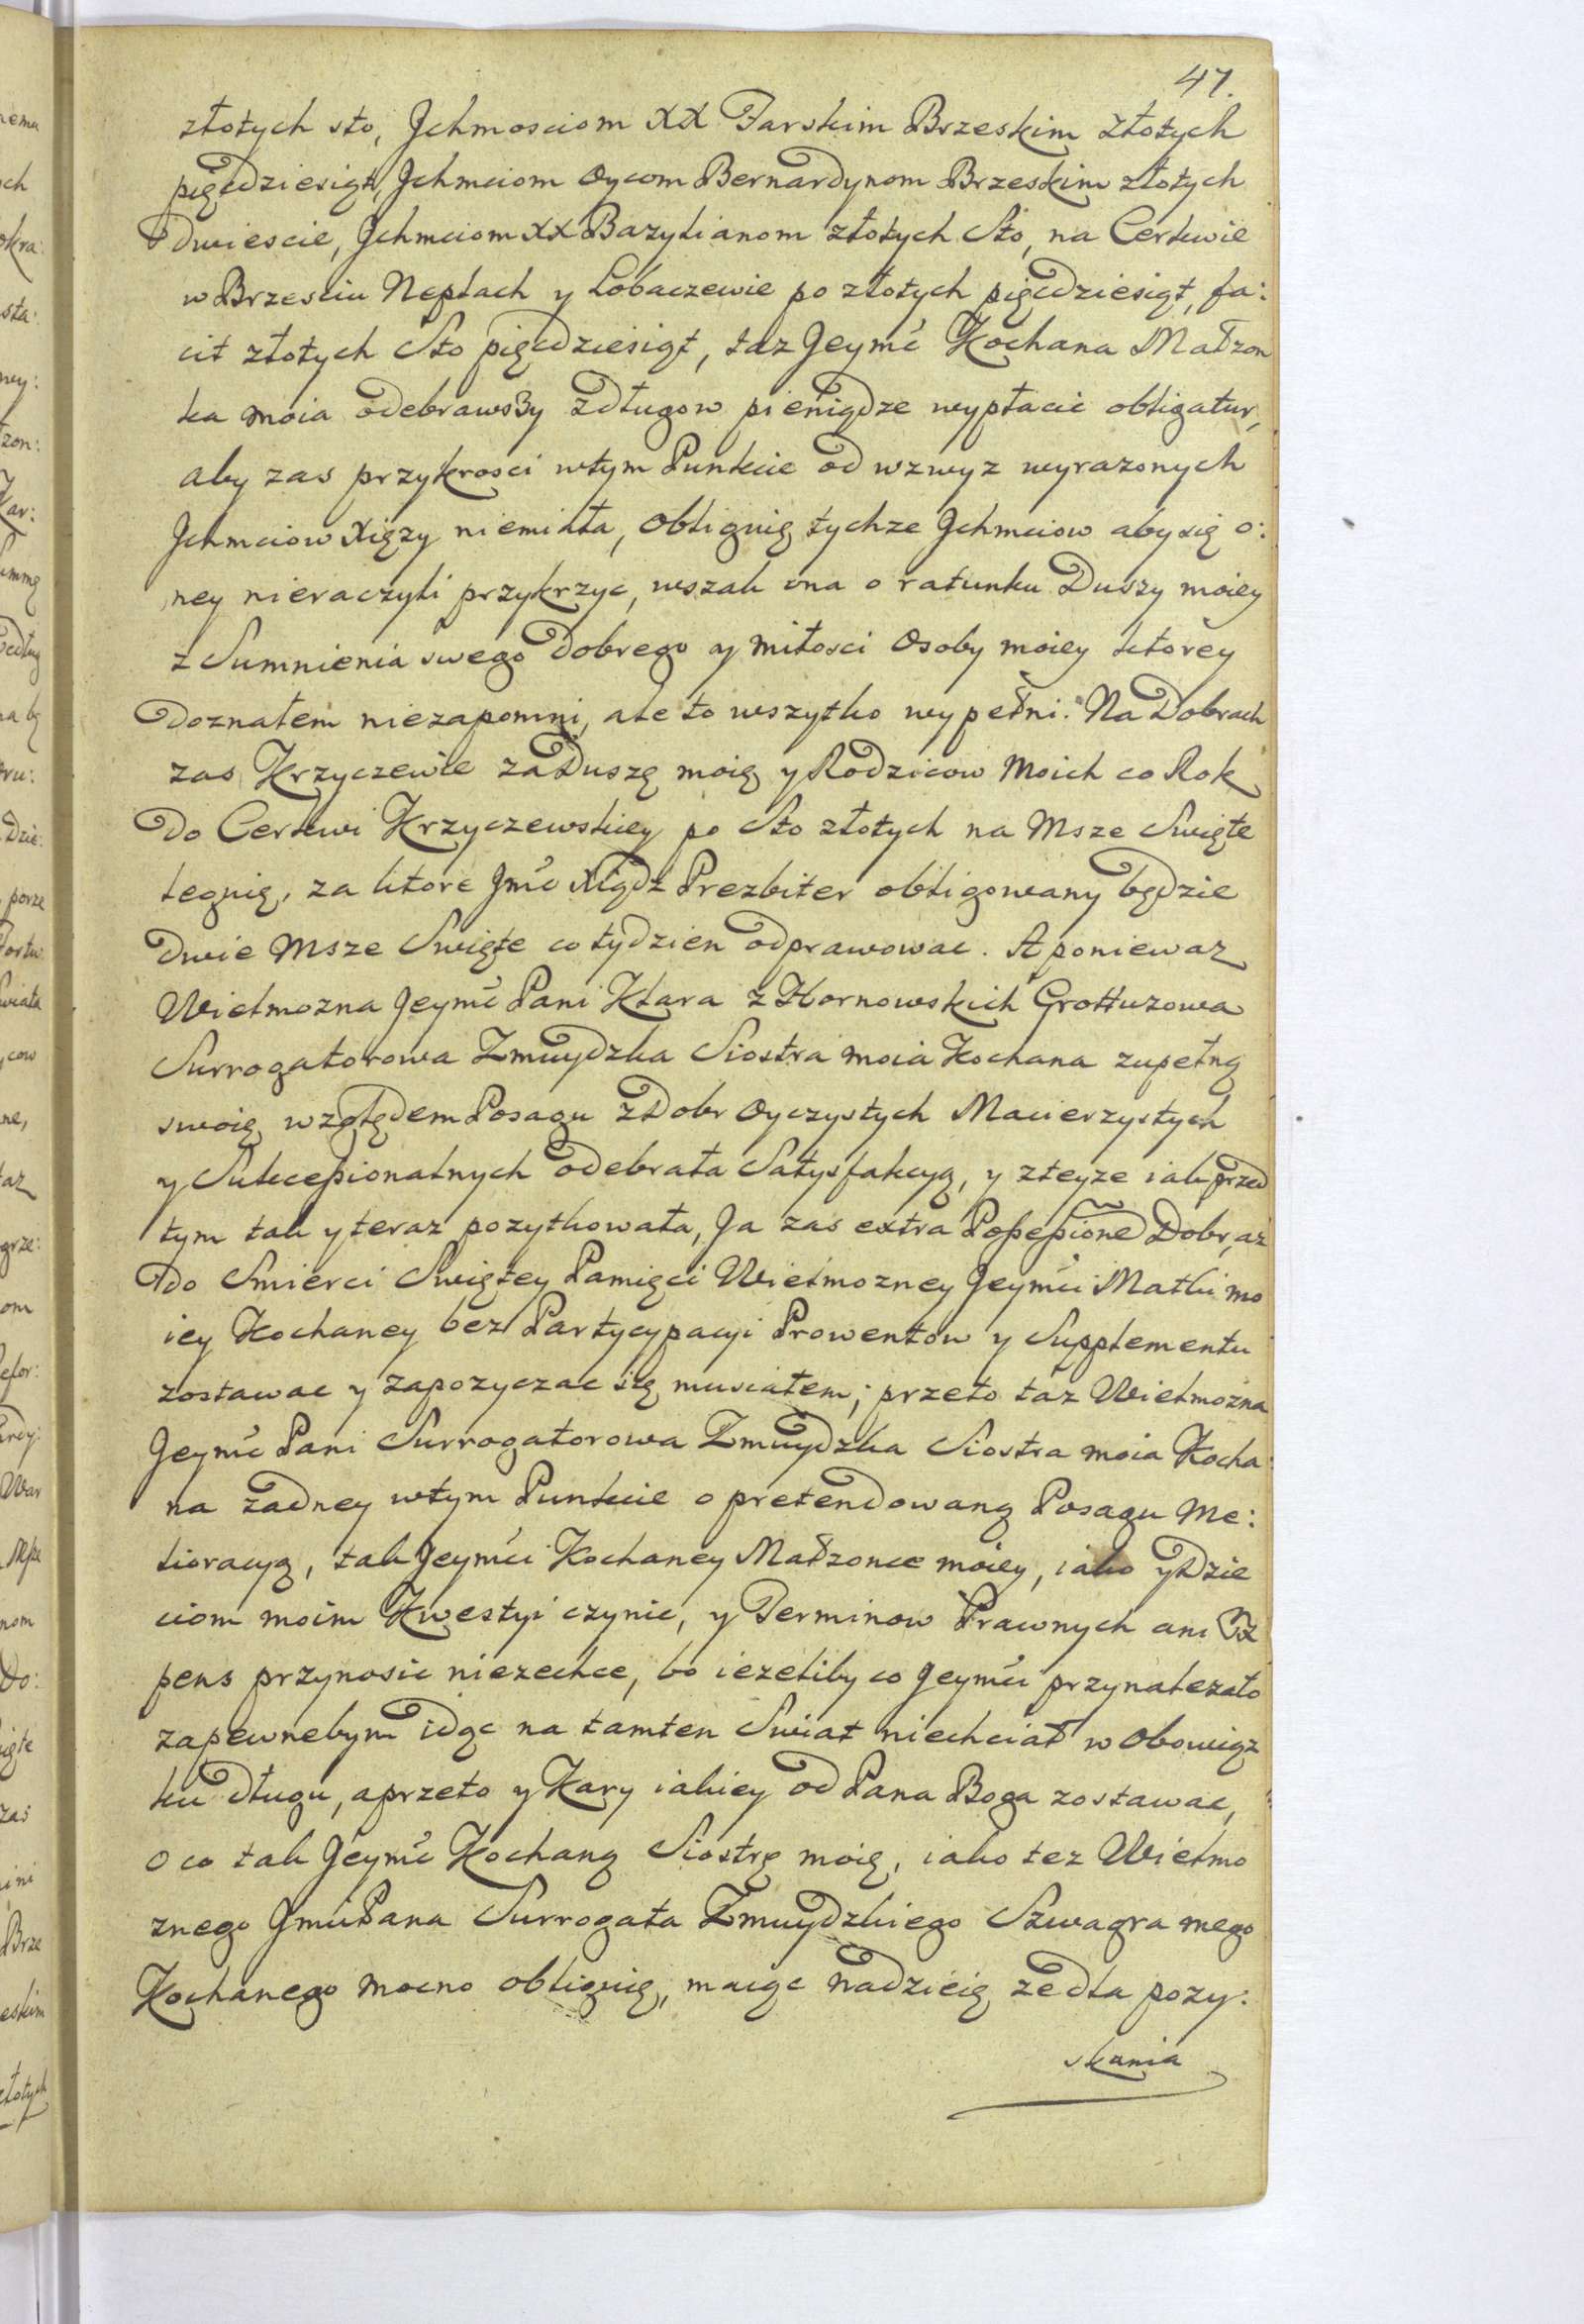 47.
złotych sto, Jchmosciom XX Farskim Brzeskim złotych
pięćdziesiąt, Jchmciom Oycom Bernardynom Brzeskim złotych
Dwiescie, Jchmciom XX Bazylianom złotych Sto, na Cerkwie
w Brzesciu Neplach y Lobaczewie po złotych pięcdziesiąt, fa:
cit złotych Sto pięcdziesiąt, taz Jeymć Kochana Małzon
ka moia odebrawszy z długow pieniądze wypłacic obligatur,
aby zas przykrosci w tym Punkcie od wzwyz wyrazonych
Jchmciow Xięzy niemiała, obliguię tychze Jchmciow aby się o:
ney nieraczyli przykrzyc, wszak ona o ratunku Duszy moiey
z Sumnienia swego Dobrego y miłosci Osoby moiey ktorey
Doznałem niezapomni, ale to wszytko wypełni. Na Dobrach
zas Krzyczewie za Duszę moię y Rodzicow Moich co Rok
Do Cerkwi Krzyczewskiey po Sto złotych na Msze Swięte
leguię, za ktore Jmć Xiądz Prezbiter obligowany będzie
Dwie Msze Swięte co tydzien odprawowac. A poniewaz
Wielmozna Jeymć Pani Klara z Hornowskich Grottuzowa
Surrogatorowa Zmuydzka Siostra moia Kochana zupełną
swoię względem Posagu z Dobr Oyczystych Macierzystych
y Sukcessionalnych odebrała Satysfakcyą, y zteyze iak przed
tym tak y teraz pozytkowała, Ja zas extra Possessione Dobr, az
Do Smierci Swiętey Pamięci Wielmozney Jeymći Matki mo
iey Kochaney bez Partycypacyi Prowentow y Supplementu
zostawac y zapozyczac się musiałem; przeto taz Wielmozna
Jeymć Pani Surrogatorowa Zmuydzka Siostra moia Kocha:
na zadney w tym Punkcie o pretendowaną Posagu Me:
lioracyą, tak Jeymći Kochaney Małzonce moiey, iako y Dzie
ciom moim Kwestyi czynic, y Terminow Prawnych ani Ex
pens przynosic niezechce, bo iezeliby co Jeymći przynalezało
zapewnebym idąc na tamten Swiat niechciał w Obowiąz
ku długu, a przeto y Kary iakiey od Pana Boga zostawac,
O co tak Jeymć Kochaną Siostrę moię, iako tez Wielmo
znego Jmći Pana Surrogata Zmuydzkiego Szwagra mego
Kochanego mocno obliguię, maiąc nadzieię ze dla pozy:
skania